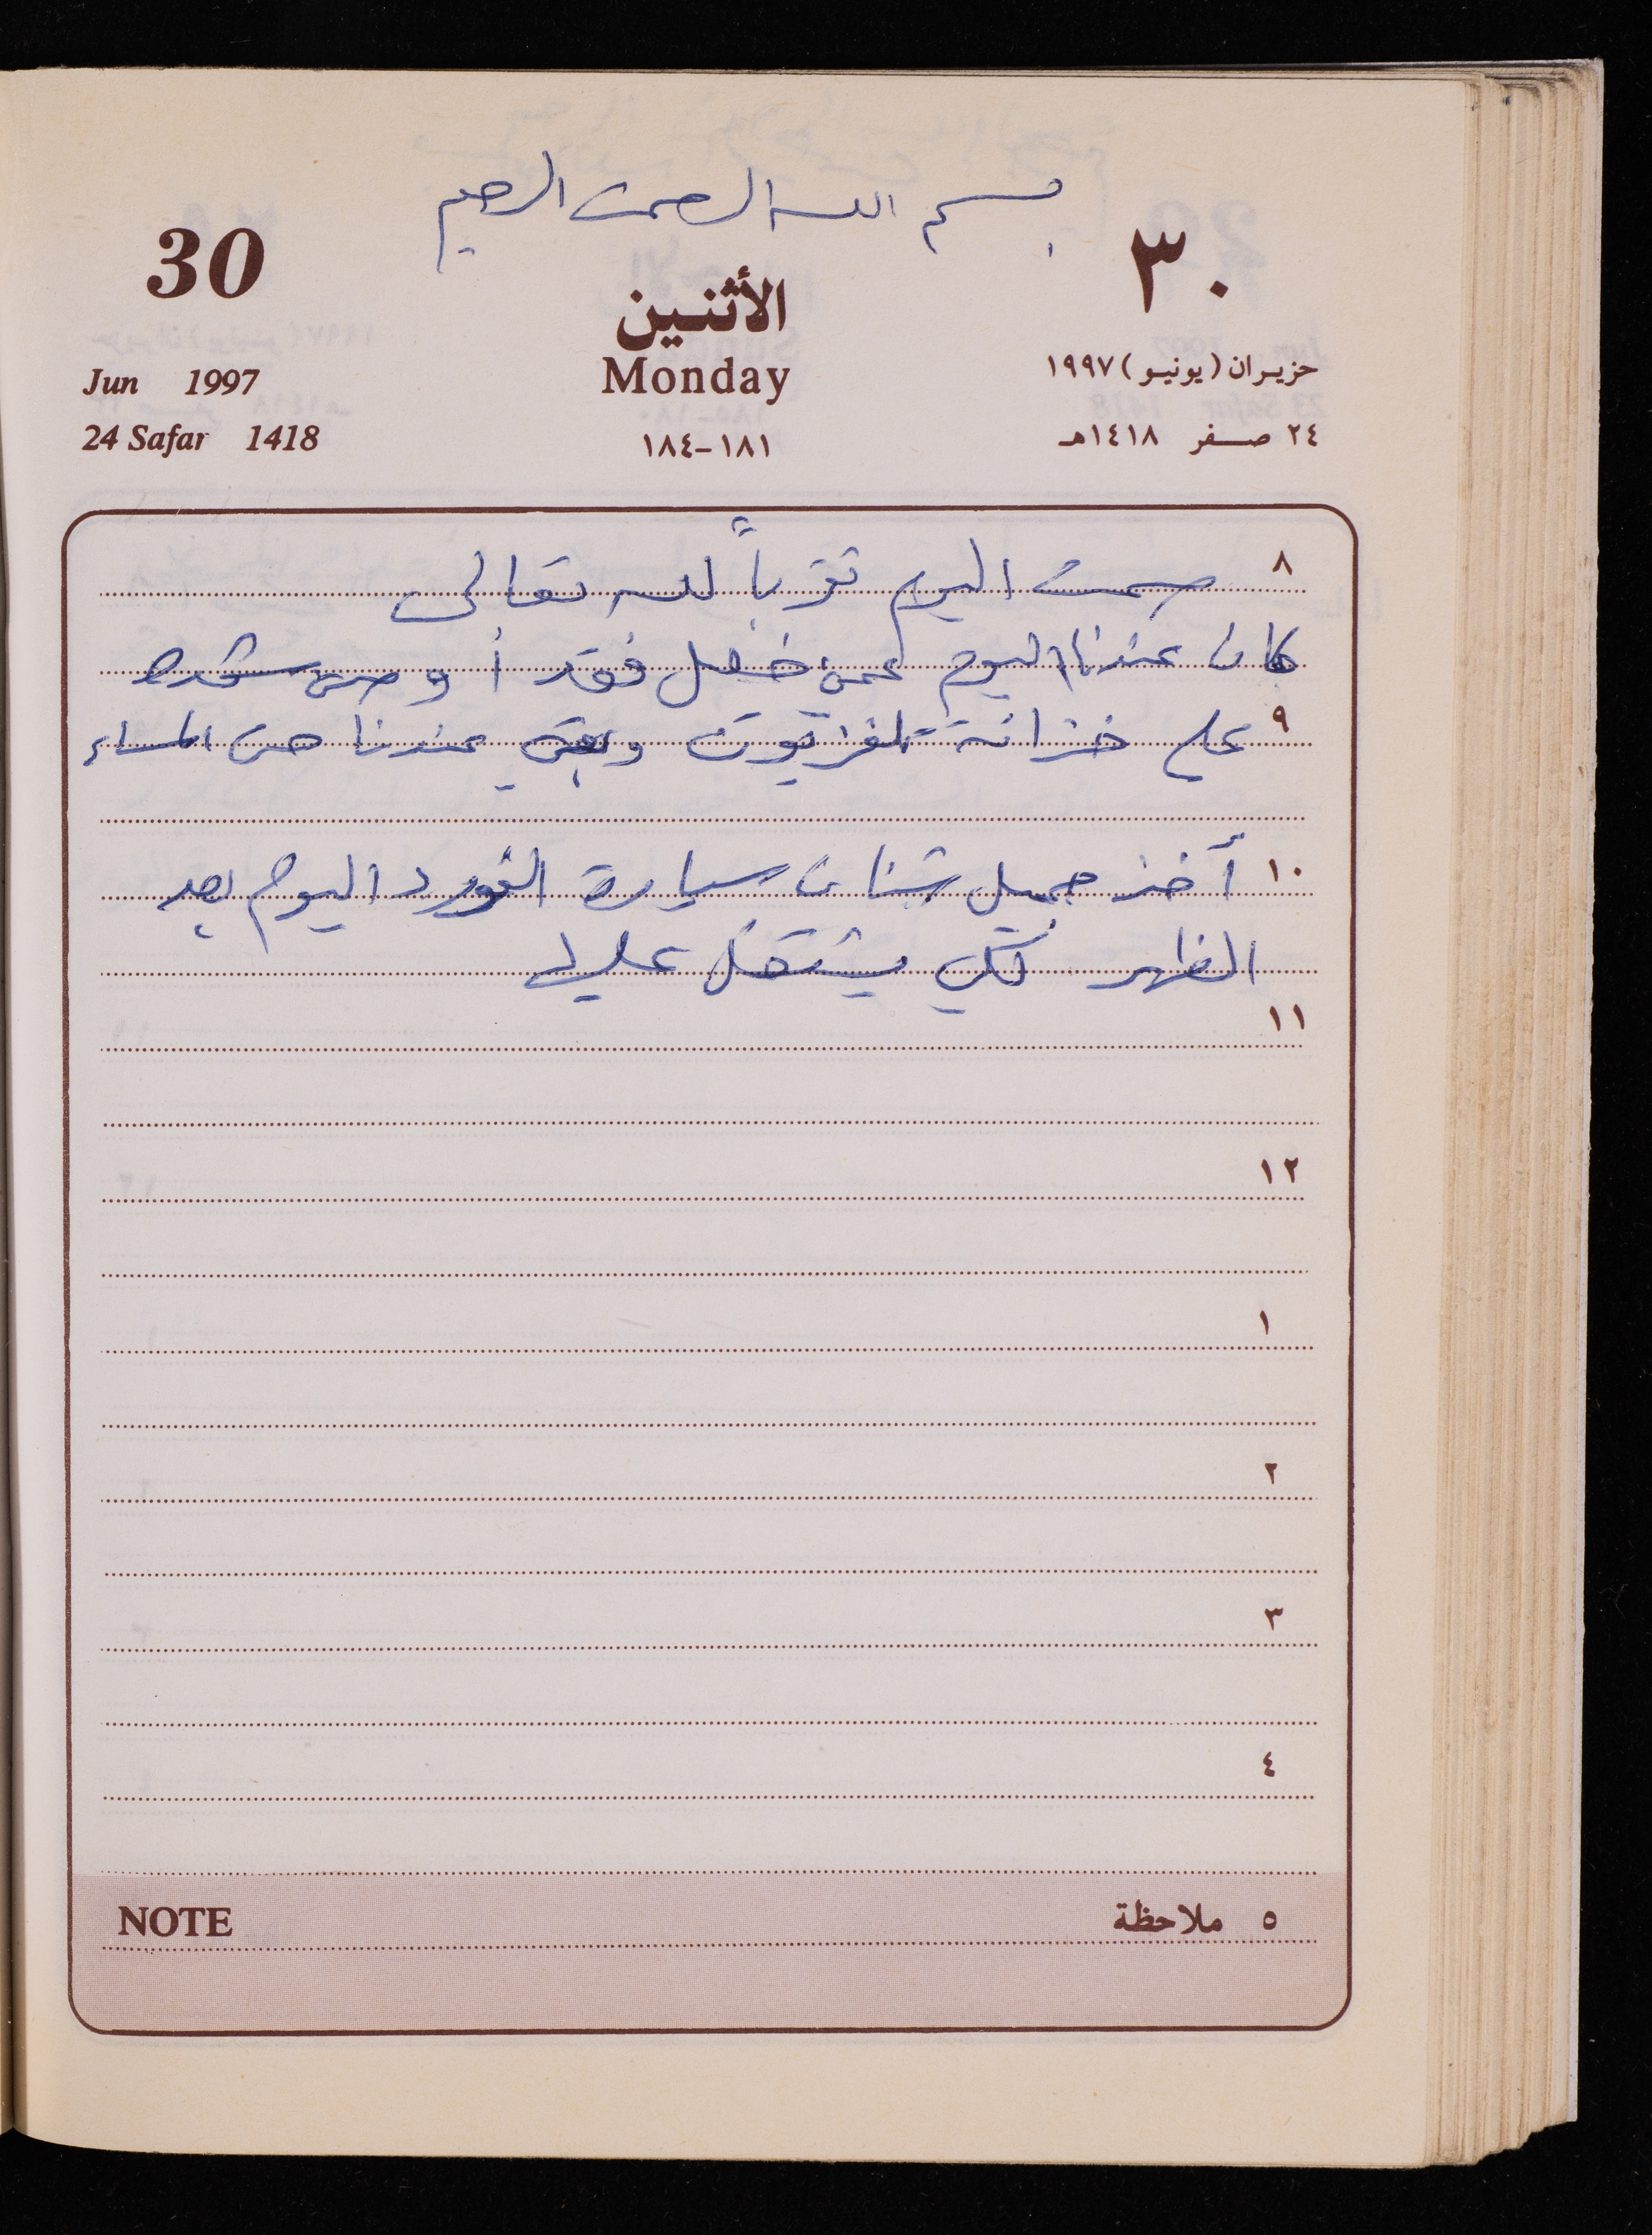 بسم الله الرحمن الرحيم
30
٣٠
الأثنين
Monday
Jun 1997
حزيران (يونيو) ١٩٩٧
24 Safar 1418
١٨١-١٨٤
٢٤ صفر ١٤١٨هـ
٨ صمت اليوم تقرباً لله تعالى
كان عندنا اليوم خضل فقد أوصى
٩ على خزانة تلفزيون وبقي عندنا حتى المساء
١٠ أخذ جميل سيارة الفورد اليوم بعد
الظهر لكي يشتغل عليها
١١
١٢
١
٢
٣
٤
NOTE
٥ ملاحظة